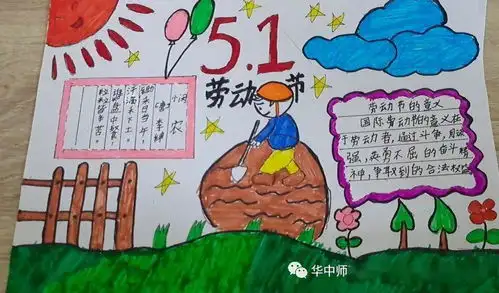 5.1
劳动节
悯农
唐 李绅
锄禾日当午，
汗滴禾下土。
谁知盘中餐
粒粒皆辛苦。
劳动节的意义
国际劳动节的意义在
于劳动者，通过斗争，用顽
强，英勇不屈的奋斗精
神，争取到的合法权益
华中师